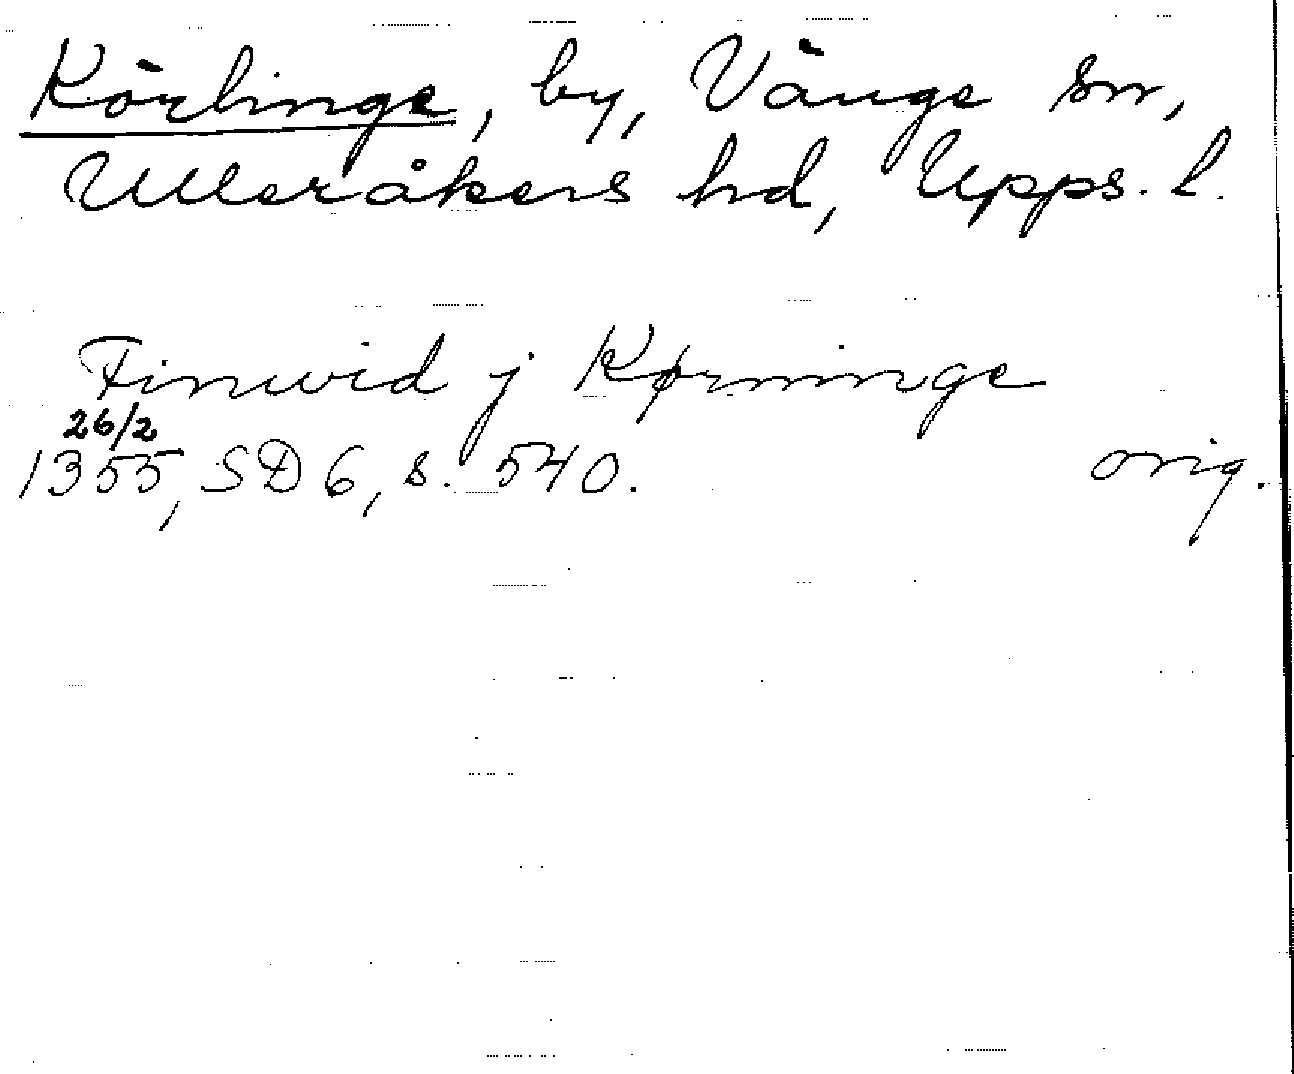 Körlinge, by, Vänge sn,
Ulleråkers hd, Upps. l.
Finwid j Kørninge
26/2
1355, SD 6, s. 540. orig.